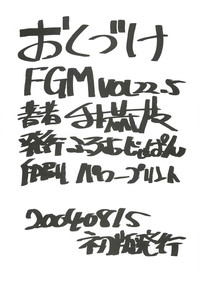 おくづけ
FGM VOL22.5
著者 手荒友
発行 ふろむじゃぱん
印刷 パワープリント
20040815
初版発行